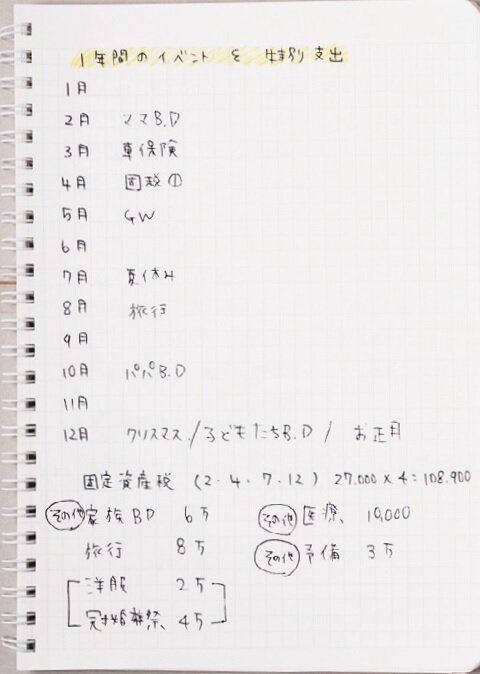 1年間のイベント & 特別支出
1月
2月 ママB.D
3月 車保険
4月 固税①
5月 GW
6月
7月 夏休み
8月 旅行
9月
10月 パパB.D
11月
12月 クリスマス/子どもたちB.D/お正月
固定資産税 (2・4・7・12) 27.000×4=108.900
その他 家族BD 6万 その他 医療 10,000
旅行 8万 その他 予備 3万
洋服 2万
冠婚葬祭 4万